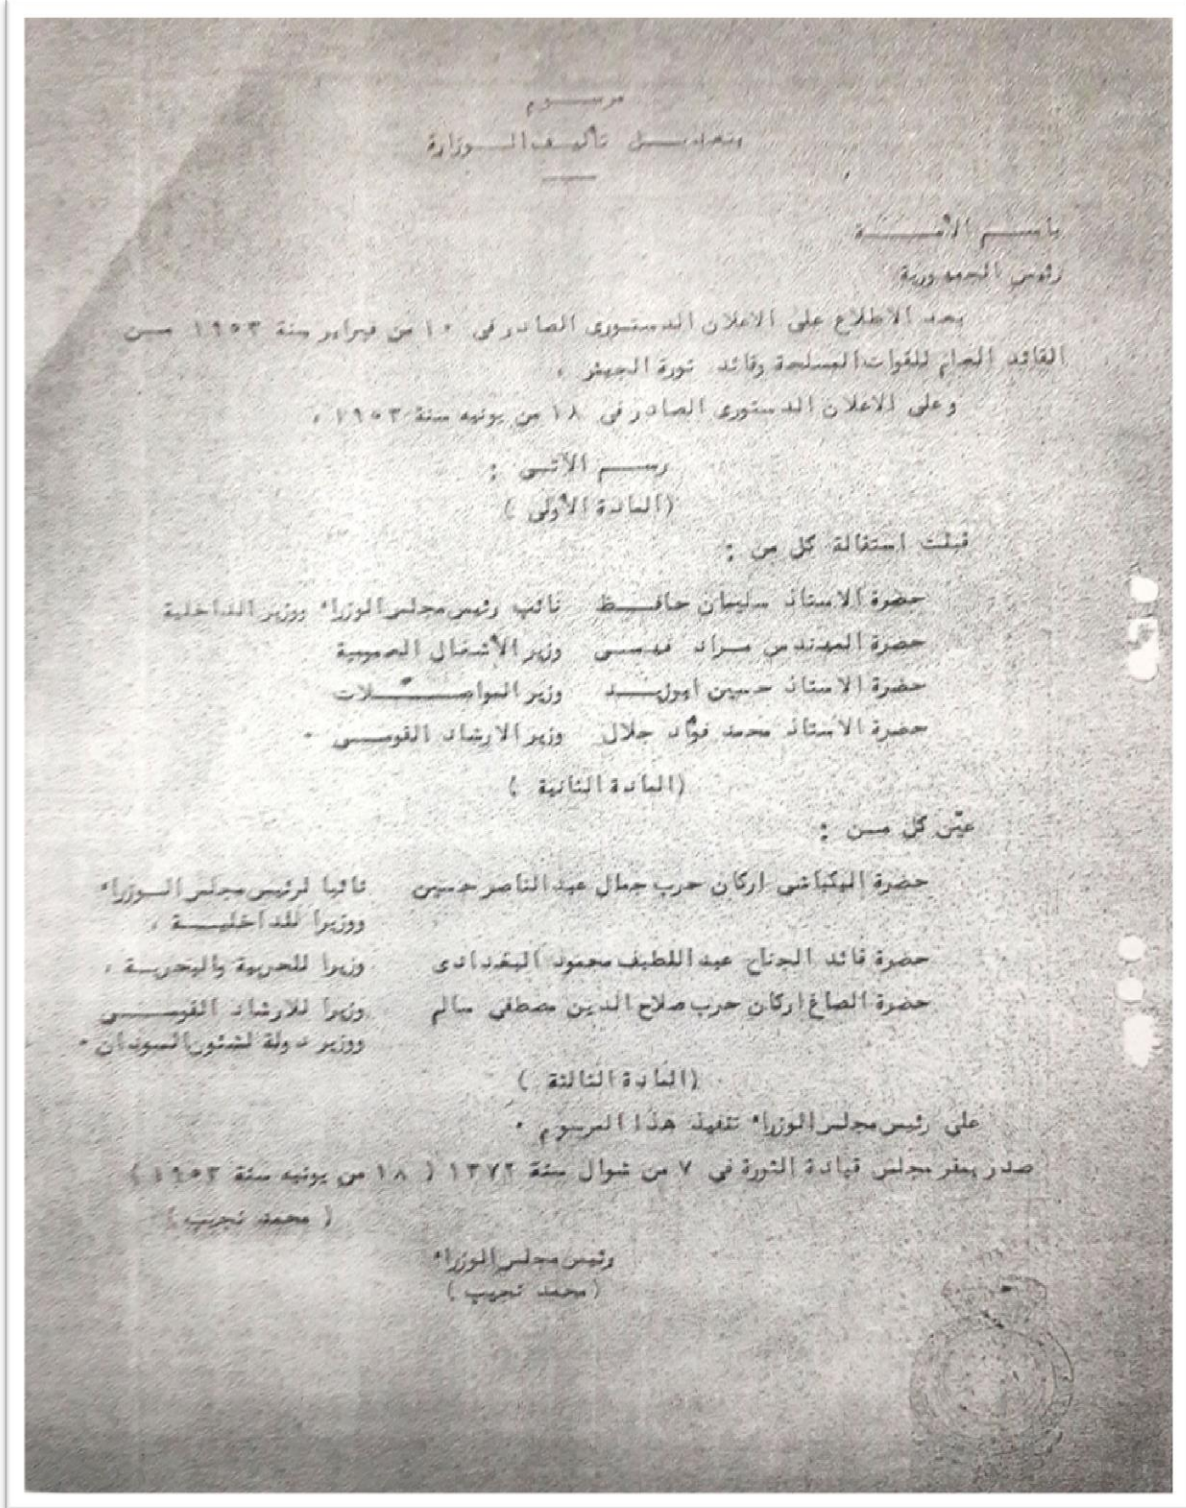 مرسوم
بتعديل تأليف الوزارة
باسم الأمة
رئيس الجمهورية
بعد الاطلاع على الاعلان الدستورى الصادر فى ١٠ من فبراير سنة ١٩٥٣ من
القائد العام للقوات المسلحة وقائد ثورة الجيش ،
وعلى الاعلان الدستورى الصادر فى ١٨ من يونيه سنة ١٩٥٣ ،
رسم الآتى :
(المادة الأولى )
قبلت استقالة كل من :
حضرة الاستاذ سليمان حافظ نائب رئيس مجلس الوزراء ووزير الداخلية
حضرة المهندس مراد فهمى وزير الأشغال العمومية
حضرة الاستاذ حسين أبوزيد وزير المواصلات
حضرة الاستاذ محمد فؤاد جلال وزير الارشاد القومى .
(المادة الثانية )
عيّن كل من :
حضرة البكباشى اركان حرب جمال عبد الناصر حسين نائبا لرئيس مجلس الوزراء
ووزيرا للداخلية ،
حضرة قائد الجناح عبد اللطيف محمود البغدادى وزيرا للحربية والبحرية ،
حضرة الصاغ اركان حرب صلاح الدين مصطفى سالم وزيرا للارشاد القومى
ووزير دولة لشئون السودان .
(المادة الثالثة )
على رئيس مجلس الوزراء تنفيذ هذا المرسوم .
صدر بمقر مجلس قيادة الثورة فى ٧ من شوال سنة ١٣٧٢ ( ١٨ من يونيه سنة ١٩٥٣ )
( محمد نجيب )
رئيس مجلس الوزراء
(محمد نجيب )